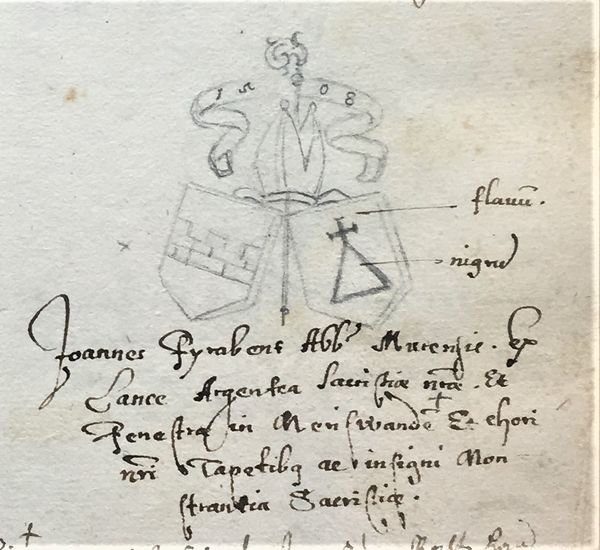 1508
flavū.
nigrū
Joannes Fyrabent Abbˢ Murensis. Ex
Lance Argentea sacristiæ nr̄æ. Et
Fenestra in Meriswandē Et chori
nr̄i Tapetibq ac insigni Mon
strantia Sacristiæ.